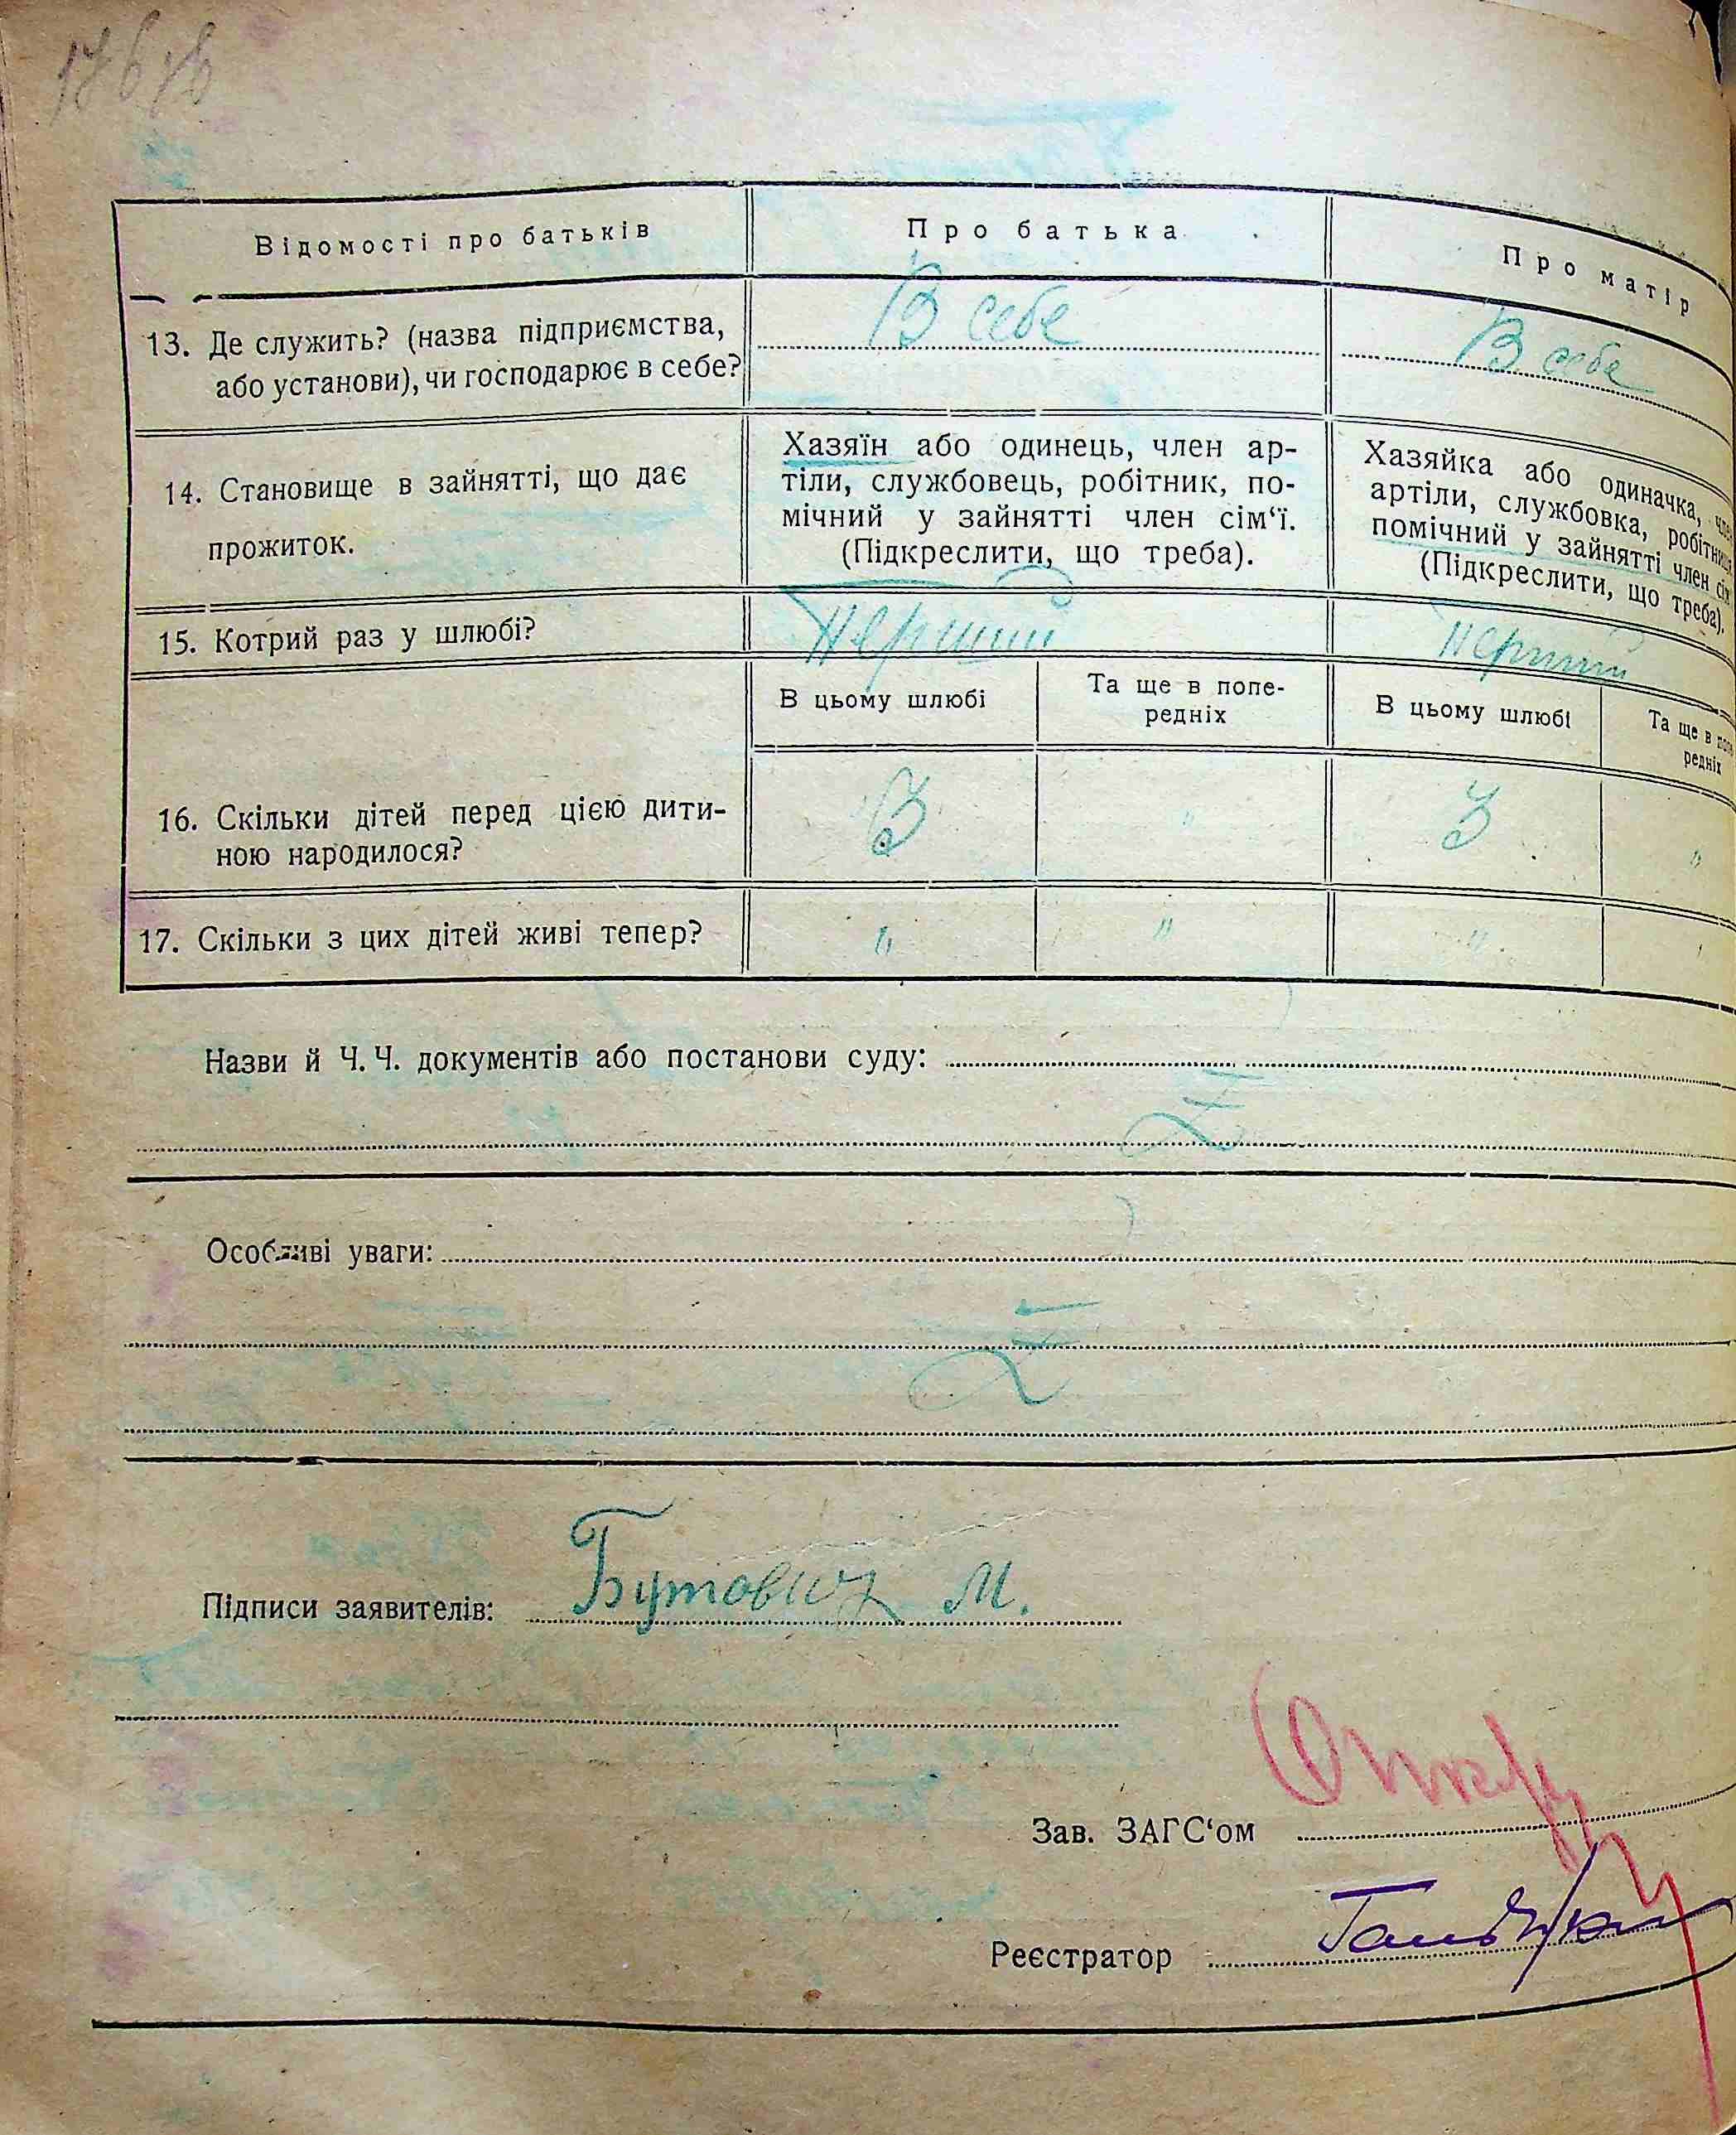 Відомості про батьків
Про батька
Про матір
13. Де служить? (назва підприємства,
або установи), чи господарює в себе?
В себе
В себе
14. Становище в зайнятті, що дає
прожиток.
Хазяїн або одинець, член ар-
тіли, службовець, робітник, по-
мічний у зайнятті член сім‘ї.
(Підкреслити, що треба).
Хазяйка або одиначка,
артіли, службовка,
помічний у зайнятті член
(Підкреслити, що треба).
15. Котрий раз у шлюбі?
Перший
Перший
В цьому шлюбі
Та ще в попе-
редніх
В цьому шлюбі
Та ще в
редніх
16. Скільки дітей перед цією дити-
ною народилося?
3
"
3
"
17. Скільки з цих дітей живі тепер?
"
"
"
Назви й Ч. Ч. документів або постанови суду:
Особливі уваги:
Підписи заявителів: Бутович М.
Зав. ЗАГС‘ом
Реєстратор